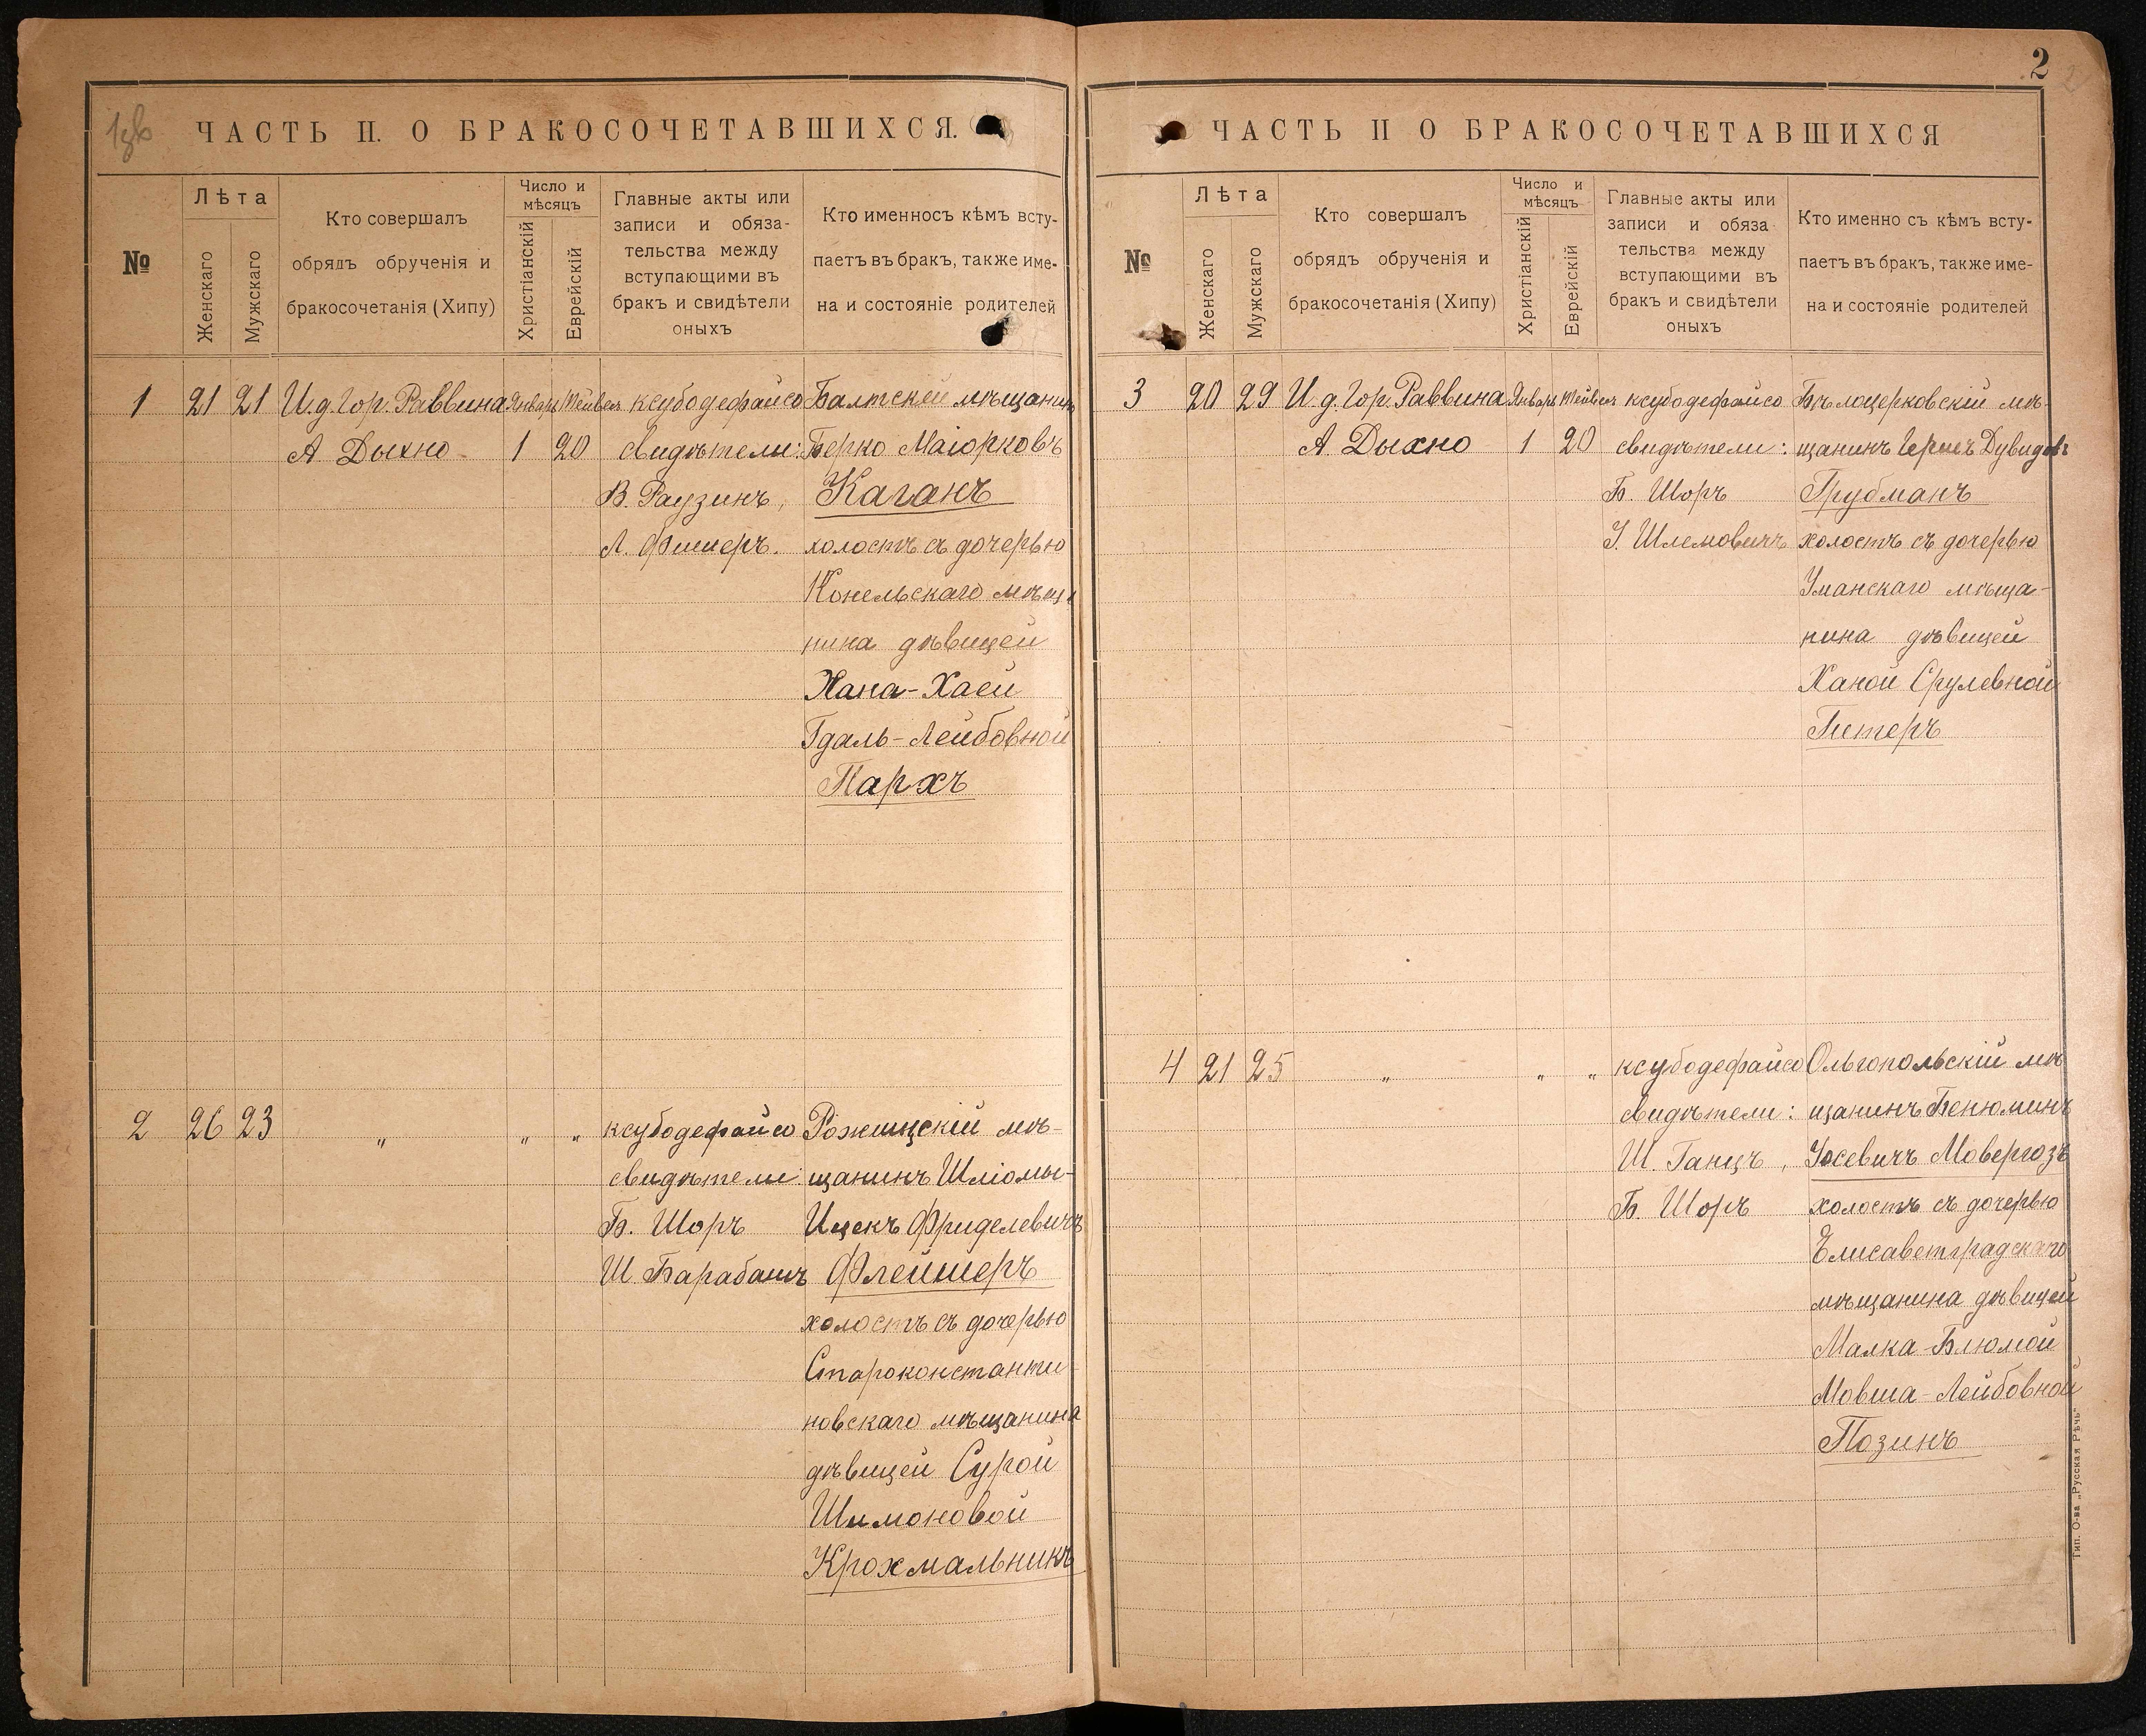 2
ЧАСТЬ II. О БРАКОСОЧЕТАВШИХСЯ.
№
Лѣта
Женскаго
Мужскаго
Кто совершалъ
обрядъ обрученія и
бракосочетанія (Хипу)
Число и
мѣсяцъ
Христіанскій
Еврейскій
Главные акты или
записи и обяза-
тельства между
вступающими въ
бракъ и свидѣтели
оныхъ
Кто именносъ кѣмъ всту-
паетъ въ бракъ, также име-
на и состояніе родителей
1 21 21 И.д. Гор. Раввина Январь Тейвея ксубодефайсо Балтскій мѣщанинъ
А Дыхно 1 20 свидѣтели: Берко Маіорковъ
В. Раузинъ, Каганъ
Л. Фишеръ. холостъ съ дочерью
Конельскаго мѣща
нина дѣвицей
Хана-Хаей
Гдаль-Лейбовной
Пархъ
2 26 23 " " " ксубодефайсо Рожищскій мѣ-
свидѣтели: щанинъ Шліомы-
Б. Шоръ Ицекъ Фриделевичъ
Ш Барабашъ Флейшеръ
холостъ съ дочерью
Староконстанти-
новскаго мѣщанина
дѣвицей Сурой
Шимоновой
Крохмальникъ
ЧАСТЬ II О БРАКОСОЧЕТАВШИХСЯ
№
Лѣта
Женскаго
Мужскаго
Кто совершалъ
обрядъ обрученія и
бракосочетанія (Хипу)
Число и
мѣсяцъ
Христіанскій
Еврейскій
Главные акты или
записи и обяза
тельства между
вступающими въ
бракъ и свидѣтели
оныхъ
Кто именно съ кѣмъ всту-
паетъ въ бракъ, также име-
на и состояніе родителей
3 20 29 И.д. Гор. Раввина Январь Тейвея ксубодефайсо Бѣлоцерковскій мѣ-
А Дыхно 1 20 свидѣтели: щанинъ Гершъ Дувидовъ
Б. Шоръ Грубманъ
І. Шлемовичъ холостъ съ дочерью
Уманскаго мѣща-
нина дѣвицей
Ханой Срулевной
Петеръ
4 21 25 " " " ксубодефайсо Ольгопольскій мѣ
свидѣтели: щанинъ Бенюминъ
Ш. Ганцъ, Іосевичъ Мовергозъ
Б. Шоръ холостъ съ дочерью
Елисаветградскаго
мѣщанина дѣвицей
Малка-Блюмой
Мовша-Лейбовной
Позинъ
Тип. О-ва „Русская Рѣчь“